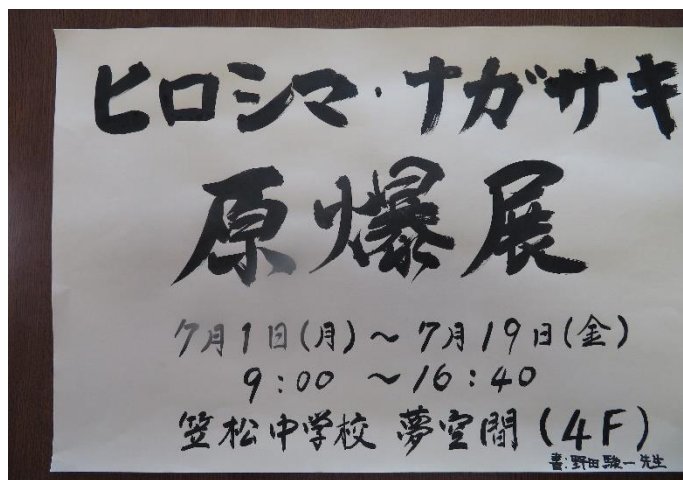 ヒロシマ・ナガサキ
原爆展
7月1日(月)～7月19日(金)
9:00 ～16:40
笠松中学校 夢空間(4F)
書:野田 駿一先生